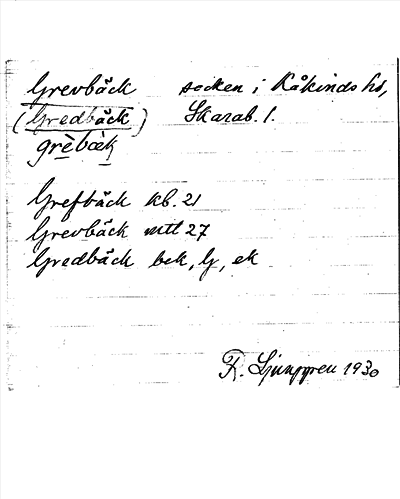 Grevbäck socken i Kåkinds hd,
(Gredbäck) Skarab. l.
grèbæk
Grefbäck kb. 21
Grevbäck mtl 27
Gredbäck bek, lj, ek
R. Ljunggren 1930